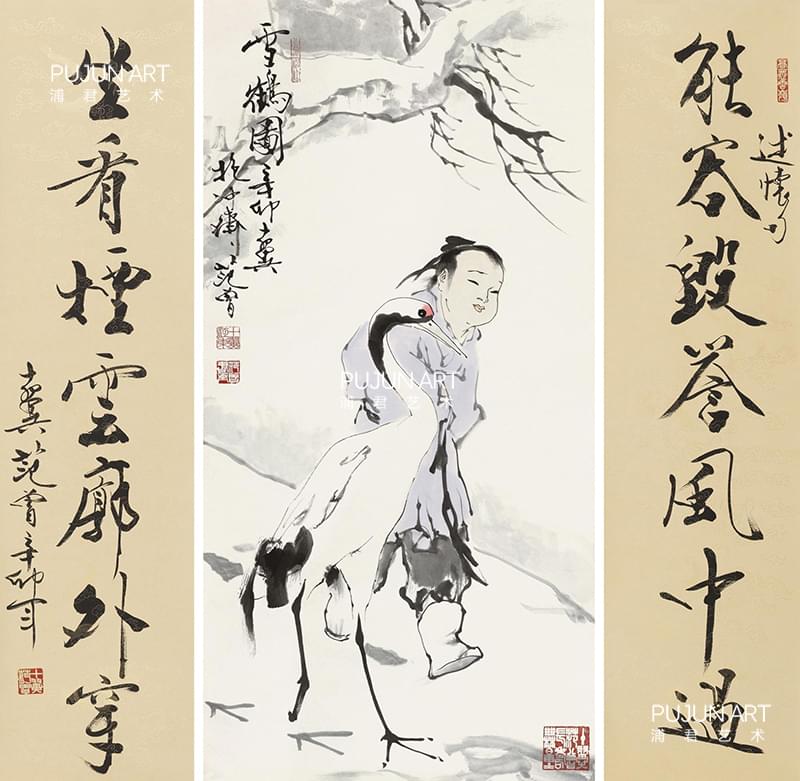 述懷句
能容毀誉風中過
雪鶴圖辛卯十翼
抱冲齋范曾
坐看煙雲廓外穿
十翼范曾辛卯年
PUJUN ART
浦君艺术
PUJUN ART
浦君艺术
PUJUN ART
浦君艺术